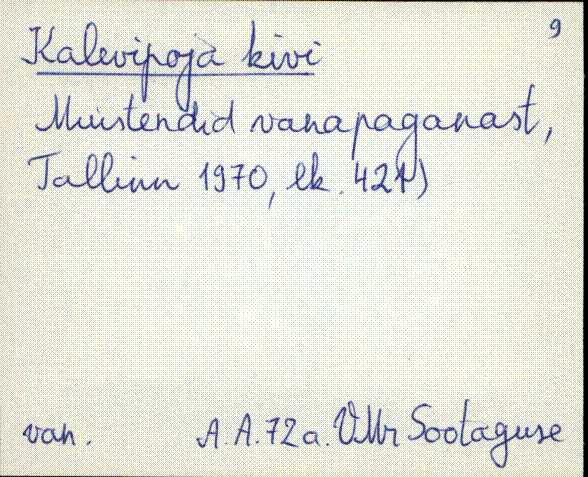 9
Kalevipoja kivi
Muistendid vanapaganast,
Tallinn 1970, lk. 421)
van. A.A.72a. VMr Sootaguse